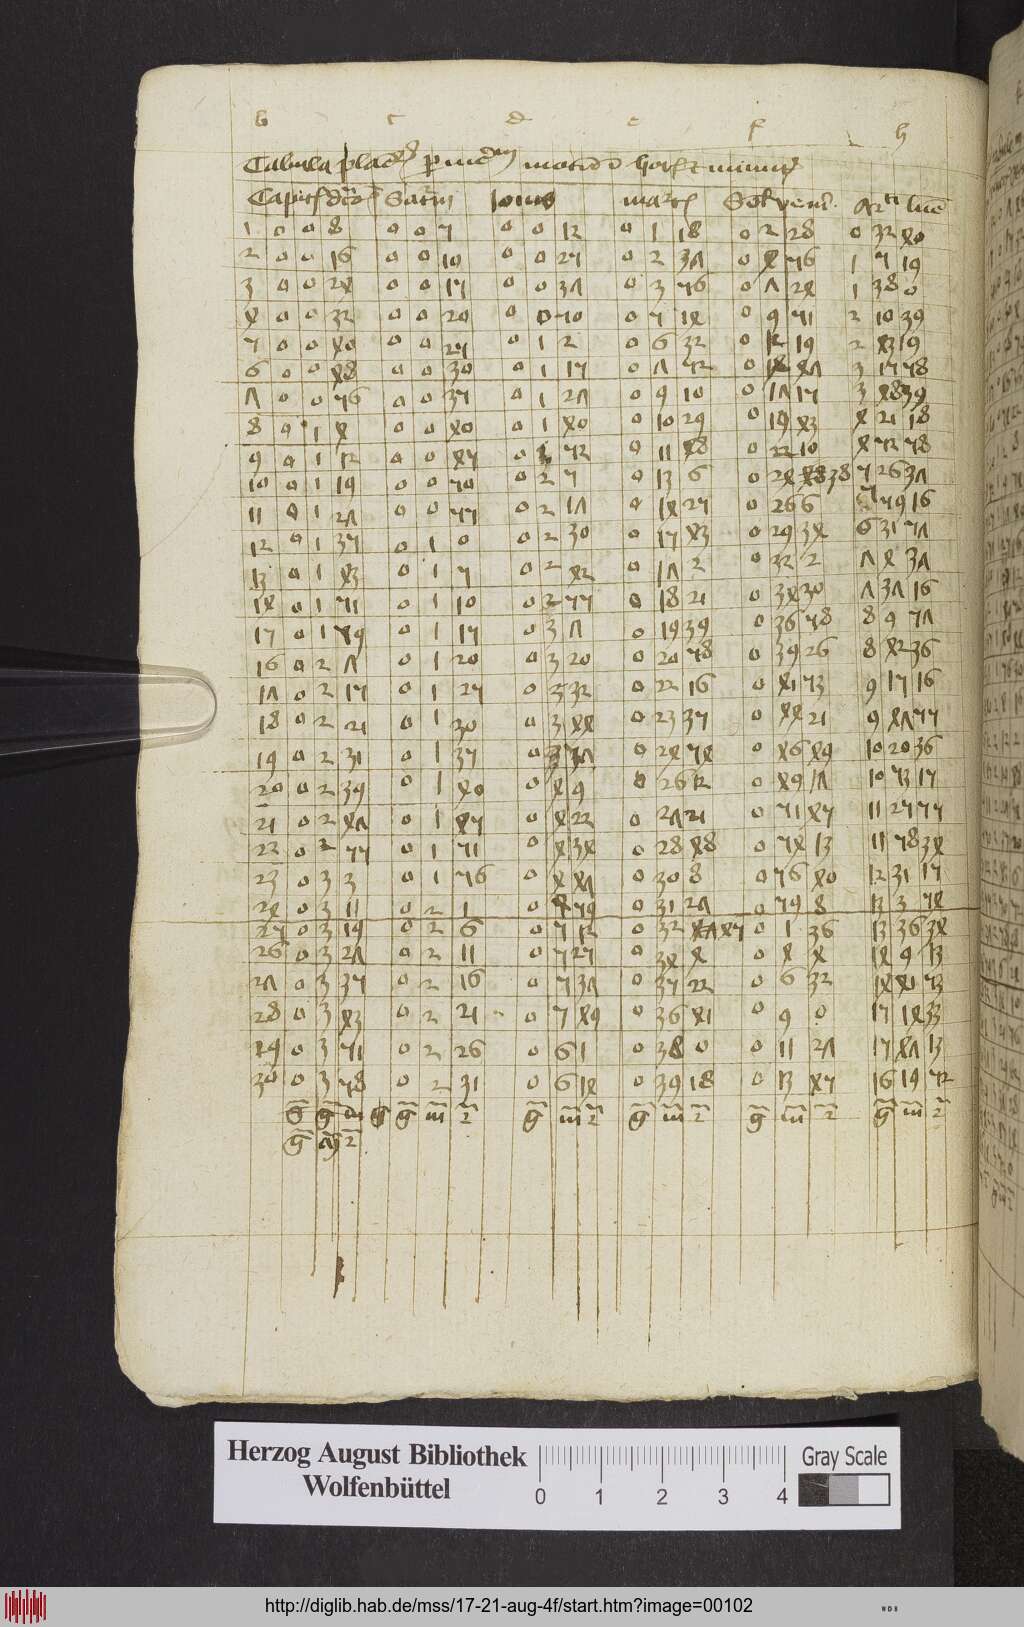 b c d e f h
Tabula
Capitis Saturni Iouis martis Sol veneris
1 0 0 8 0 0 5 0 0 12 0 1 18 0 2 28 0 32 40
2 0 0 16 0 0 10 0 0 25 0 2 37 0 4 56 1 5 19
3 0 0 24 0 0 15 0 0 37 0 3 56 0 7 24 1 38 0
4 0 0 32 0 0 20 0 0 50 0 5 14 0 9 51 2 10 39
5 0 0 40 0 0 25 0 1 2 0 6 32 0 12 19 2 43 19
6 0 0 48 0 0 30 0 1 15 0 7 52 0 14 47 3 15 58
7 0 0 56 0 0 35 0 1 27 0 9 10 0 17 15 3 48 39
8 0 1 4 0 0 40 0 1 40 0 10 29 0 19 43 4 21 18
9 0 1 12 0 0 45 0 1 52 0 11 48 0 22 10 4 52 58
10 0 1 19 0 0 50 0 2 5 0 13 6 0 24 38 5 26 37
11 0 1 27 0 0 55 0 2 17 0 14 25 0 26 6 5 59 16
12 0 1 35 0 1 0 0 2 30 0 15 43 0 29 34 6 31 57
13 0 1 43 0 1 5 0 2 42 0 17 2 0 32 2 7 4 37
14 0 1 51 0 1 10 0 2 55 0 18 21 0 34 30 7 37 16
15 0 1 59 0 1 15 0 3 7 0 19 39 0 36 58 8 9 57
16 0 2 7 0 1 20 0 3 20 0 20 58 0 39 26 8 42 36
17 0 2 15 0 1 25 0 3 32 0 22 16 0 41 53 9 15 16
18 0 2 21 0 1 30 0 3 44 0 23 35 0 44 21 9 47 55
19 0 2 31 0 1 35 0 3 57 0 24 54 0 46 49 10 20 36
20 0 2 39 0 1 40 0 4 9 0 26 12 0 49 17 10 53 15
21 0 2 47 0 1 45 0 4 22 0 27 21 0 51 45 11 25 55
22 0 2 55 0 1 51 0 4 34 0 28 48 0 54 13 11 58 34
23 0 3 3 0 1 56 0 4 47 0 30 8 0 56 40 12 31 15
24 0 3 11 0 2 1 0 4 59 0 31 27 0 59 8 13 3 54
25 0 3 19 0 2 6 0 5 12 0 32 47 45 0 1 36 13 36 34
26 0 3 27 0 2 11 0 5 25 0 34 4 0 4 4 14 9 13
27 0 3 35 0 2 16 0 5 37 0 35 22 0 6 32 14 41 53
28 0 3 43 0 2 21 0 5 49 0 36 41 0 9 0 15 14 33
29 0 3 51 0 2 26 0 6 1 0 38 0 0 11 27 15 47 13
30 0 3 58 0 2 31 0 6 14 0 39 18 0 13 45 16 19 52
g̅ m̅ 2̅ g̅ m̅ 2̅ g̅ m̅ 2̅ g̅ m̅ 2̅ g̅ m̅ 2̅
Herzog August Bibliothek
Wolfenbüttel
0 1 2 3 4
Gray Scale
http://diglib.hab.de/mss/17-21-aug-4f/start.htm?image=00102
WDB